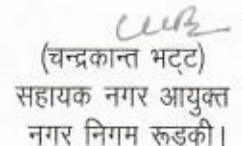 (चन्द्रकान्त भट्ट)
सहायक नगर आयुक्त
नगर निगम रूड़की।